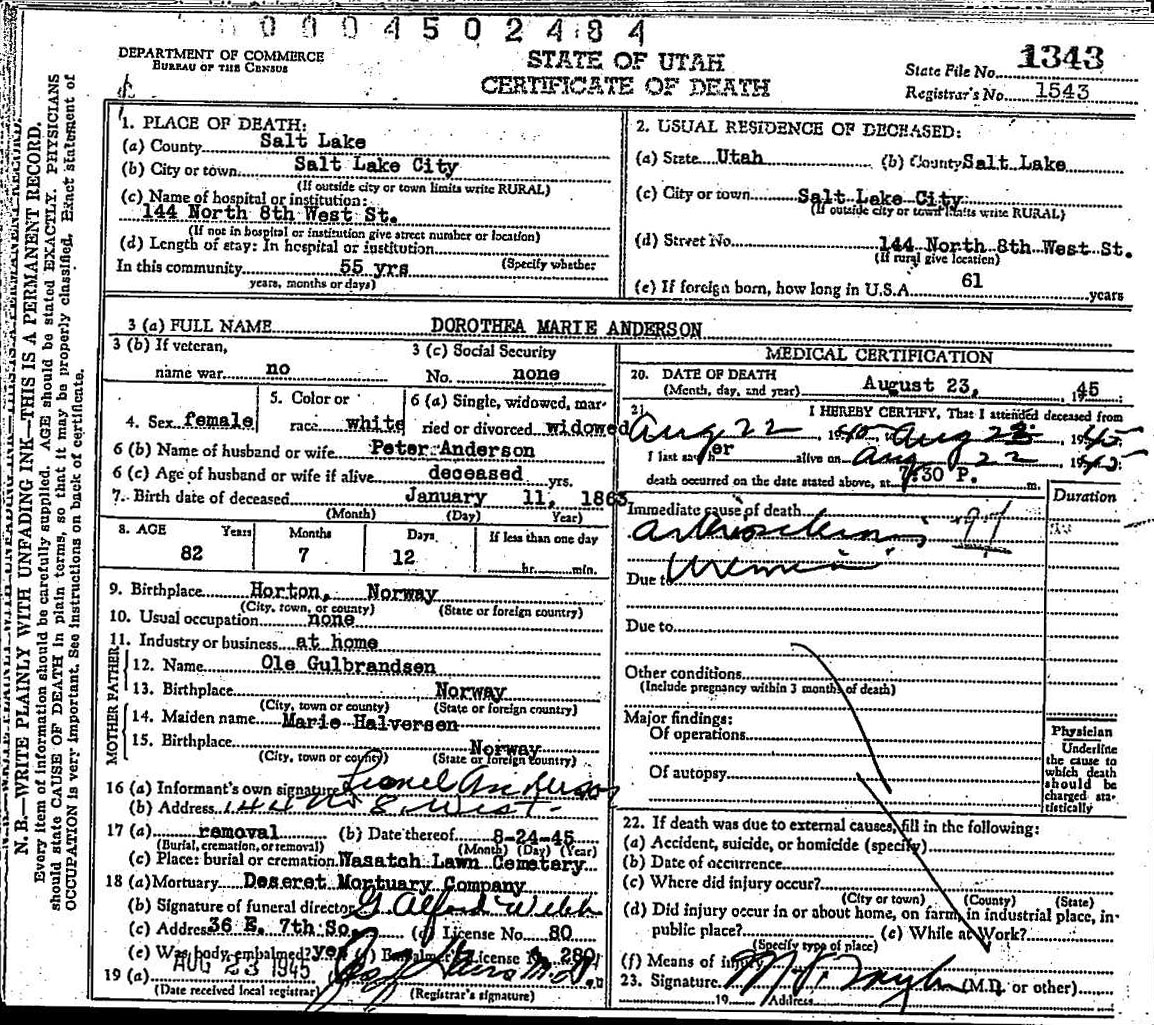 0004502484
DEPARTMENT OF COMMERCE
BUREAU OF THE CENSUS
STATE OF UTAH
CERTIFICATE OF DEATH
State File No. 1343
Registrar's No. 1543
N. B.—WRITE PLAINLY WITH UNFADING INK—THIS IS A PERMANENT RECORD.
Every item of information should be carefully supplied. AGE should be stated EXACTLY. PHYSICIANS
should state CAUSE OF DEATH in plain terms, so that it may be properly classified. Exact statement of
OCCUPATION is very important. See instructions on back of certificate.
1. PLACE OF DEATH:
(a) County Salt Lake
(b) City or town Salt Lake City
(If outside city or town limits write RURAL)
(c) Name of hospital or institution:
144 North 8th West St.
(If not in hospital or institution give street number or location)
(d) Length of stay: In hospital or institution
(Specify whether
In this community 55 yrs
years, months or days)
2. USUAL RESIDENCE OF DECEASED:
(a) State Utah (b) County Salt Lake
(c) City or town Salt Lake City
(If outside city or town limits write RURAL)
(d) Street No. 144 North 8th West St.
(If rural give location)
(e) If foreign born, how long in U.S.A. 61 years
3 (a) FULL NAME DOROTHEA MARIE ANDERSON
3 (b) If veteran,
name war no
3 (c) Social Security
No. none
4. Sex female
5. Color or
race white
6 (a) Single, widowed, mar-
ried or divorced widowed
6 (b) Name of husband or wife Peter Anderson
6 (c) Age of husband or wife if alive deceased yrs.
7. Birth date of deceased January 11, 1863
(Month) (Day) (Year)
8. AGE Years Months Days If less than one day
82 7 12 hr. min.
9. Birthplace Horton, Norway
(City, town, or county) (State or foreign country)
10. Usual occupation none
11. Industry or business at home
FATHER
12. Name Ole Gulbrandsen
13. Birthplace Norway
(City, town or county) (State or foreign country)
MOTHER
14. Maiden name Marie Halversen
15. Birthplace Norway
(City, town or county) (State or foreign country)
16 (a) Informant's own signature Lionel Anderson
(b) Address 144 No 8 West
17 (a) removal (b) Date thereof 8-24-45
(Burial, cremation, or removal) (Month) (Day) (Year)
(c) Place: burial or cremation Wasatch Lawn Cemetery
18 (a) Mortuary Deseret Mortuary Company
(b) Signature of funeral director G Alfred Webb
(c) Address 36 E. 7th So. (d) License No. 80
(e) Was body embalmed? yes (f) Embalmer's License No. 280
19 (a) AUG 23 1945
(Date received local registrar) (Registrar's signature)
MEDICAL CERTIFICATION
20. DATE OF DEATH
(Month, day, and year) August 23, 1945
21. I HEREBY CERTIFY, That I attended deceased from
Aug 22 1945 to Aug 23, 1945
I last saw her alive on Aug 22 1945
death occurred on the date stated above, at 7:30 P. m.
Duration
Immediate cause of death
Arteriosclerosis 97
Due to Uremia
Due to
Other conditions
(Include pregnancy within 3 months of death)
Major findings:
Of operations
Of autopsy
Physician
Underline
the cause to
which death
should be
charged sta-
tistically
22. If death was due to external causes, fill in the following:
(a) Accident, suicide, or homicide (specify)
(b) Date of occurrence
(c) Where did injury occur?
(City or town) (County) (State)
(d) Did injury occur in or about home, on farm, in industrial place, in-
public place? (e) While at Work?
(Specify type of place)
(f) Means of injury
23. Signature (M.D. or other)
19 Address